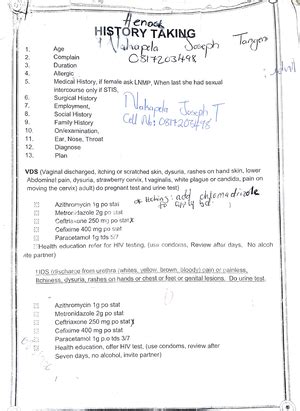 Henock
HISTORY TAKING
Nahapela Joseph Tangeni
0817203498
1. Age
2. Complain
3. Duration
4. Allergic
5. Medical History, if female ask LNMP, When last she had sexual
intercourse only if STIS,
6. Surgical History
7. Employment,
8. Social History
9. Family History
10. On/examination,
11. Ear, Nose, Throat
12. Diagnose
13. Plan
Nahapela Joseph T
Cell No: 0817203498
VDS (Vaginal discharged, itching or scratched skin, dysuria, rashes on hand skin, lower
Abdominal pain, dysuria, strawberry cervix, t.vaginalis, white plaque or candida, pain on
moving the cervix) adult) do pregnant test and urine test)
* Itching: add
to apply bd
Azithromycin 1g po stat
Metronidazole 2g po stat
Ceftriaxone 250 mg po stat
Cefixime 400 mg po stat
Paracetamol 1g tds 5/7
Health education refer for HIV testing, (use condoms, Review after days, No alcoh
ite partner)
UDS (discharge from urethra (whites, yellow, brown, bloody) pain or painless,
Itchiness, dysuria, rashes on hands or chest or feet or genital lesions. Do urine test.
Azithromycin 1g po stat
Metronidazole 2g po stat
Ceftriaxone 250 mg po stat
Cefixime 400 mg po stat
Paracetamol 1g p.o tds 3/7
Health education, offer HIV test, (use condoms, review after
Seven days, no alcohol, invite partner)